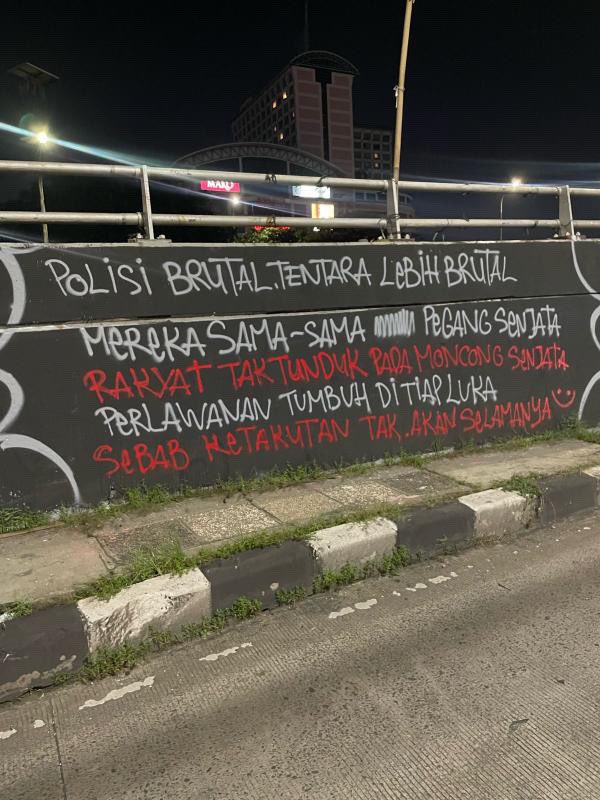 POLISI BRUTAL. TENTARA LEBIH BRUTAL
MEREKA SAMA-SAMA PEGANG SENJATA
RAKYAT TAK TUNDUK PADA MONCONG SENJATA
PERLAWANAN TUMBUH DI TIAP LUKA
SEBAB KETAKUTAN TAK..AKAN SELAMANYA